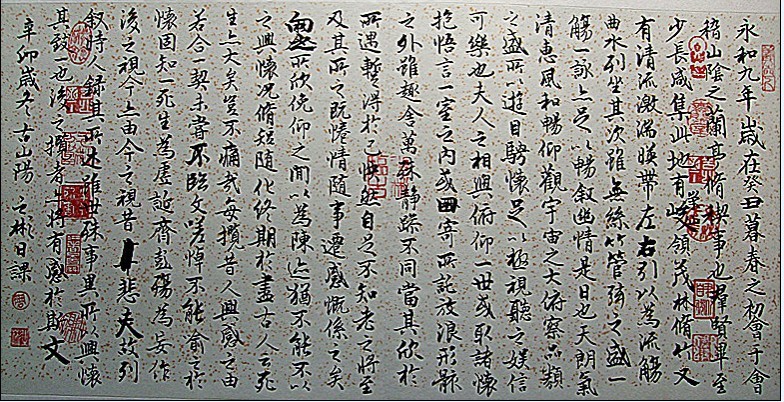 永和九年歲在癸丑暮春之初會于會
稽山陰之蘭亭脩禊事也群賢畢至
少長咸集此地有崇山峻領茂林脩竹又
有清流激湍暎帶左右引以為流觴
曲水列坐其次雖無絲竹管弦之盛一
觴一詠亦足以暢敘幽情是日也天朗氣
清惠風和暢仰觀宇宙之大俯察品類
之盛所以遊目騁懷足以極視聽之娛信
可樂也夫人之相與俯仰一世或取諸懷
抱悟言一室之內或因寄所託放浪形骸
之外雖趣舍萬殊靜躁不同當其欣於
所遇暫得於己怏然自足不知老之將至
及其所之既惓情隨事遷感慨係之矣
向之所欣俛仰之間以為陳迹猶不能不以
之興懷況脩短隨化終期於盡古人云死
生亦大矣豈不痛哉每攬昔人興感之由
若合一契未嘗不臨文嗟悼不能喻之於
懷固知一死生為虛誕齊彭殤為妄作
後之視今亦由今之視昔悲夫故列
敘時人錄其所述雖世殊事異所以興懷
其致一也後之攬者亦將有感於斯文
辛卯歲冬古山陽之彬日課